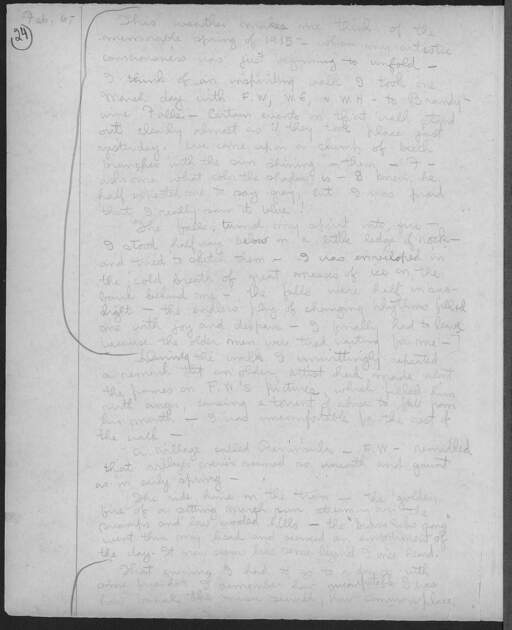 Feb. 6-
24
This weather makes me think of the
memorable spring of 1915 - when my artistic
consciousness was just beginning to unfold -
I think of an inspiring walk I took one
March day with F.W., and W.H. - to Brandy-
wine Falls. - Certain events on that walk stand
out clearly almost as if they took place just
yesterday. We came upon a clump of beech
branches with the sun shining on them - F -
asks me what color the shadow is - I knew he
half expected me to say gray, but I was proud
that I really saw it blue!
The falls turned my spirit into
I stood half way below on a little ledge of rock -
and tried to sketch them - I was enveloped in
the cold breath of great masses of ice on the
bank behind me - The falls were half in sun-
light - the endless play of changing rhythms filled
me with joy and despair - I finally had to leave
because the older men were tired waiting for me -
During the walk I unwittingly repeated
a remark that an older artist had made about
the frames on F.W's pictures, which filled him
with anger, causing a torrent of abuse to fall from
his mouth - I was uncomfortable for the rest of
the walk -
A village called - F.W. - remarked
that villages never seemed so and gaunt
as in early spring -
The ride home on the train - the golden
fire of a setting March sun over the
swamps and low wooded hills - the
went thru my head and seemed an embodiment of
the day. It now seems like some legend I once heard.
That evening I had to go to a with
some I remember how I was
how the music seemed, how commonplace